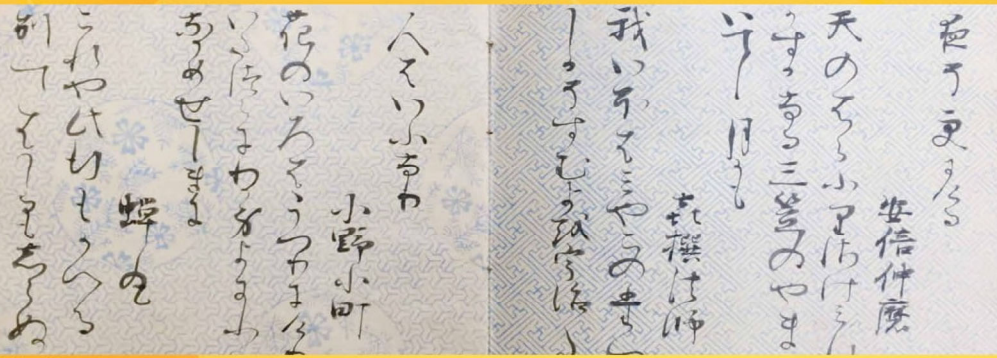 夜そ更にける
安倍仲麿
天のはらふりさけみれ
かすかなる三笠のやま
いてし月かも
喜撰法師
我いほはみやこの
しかそすむよを宇治
人はいふなり
小野小町
花のいろはうつりにけり
いたつらにわか身よにふ
なかめせしまに
蝉丸
これや此行もかへる
別てはしるもしらぬ